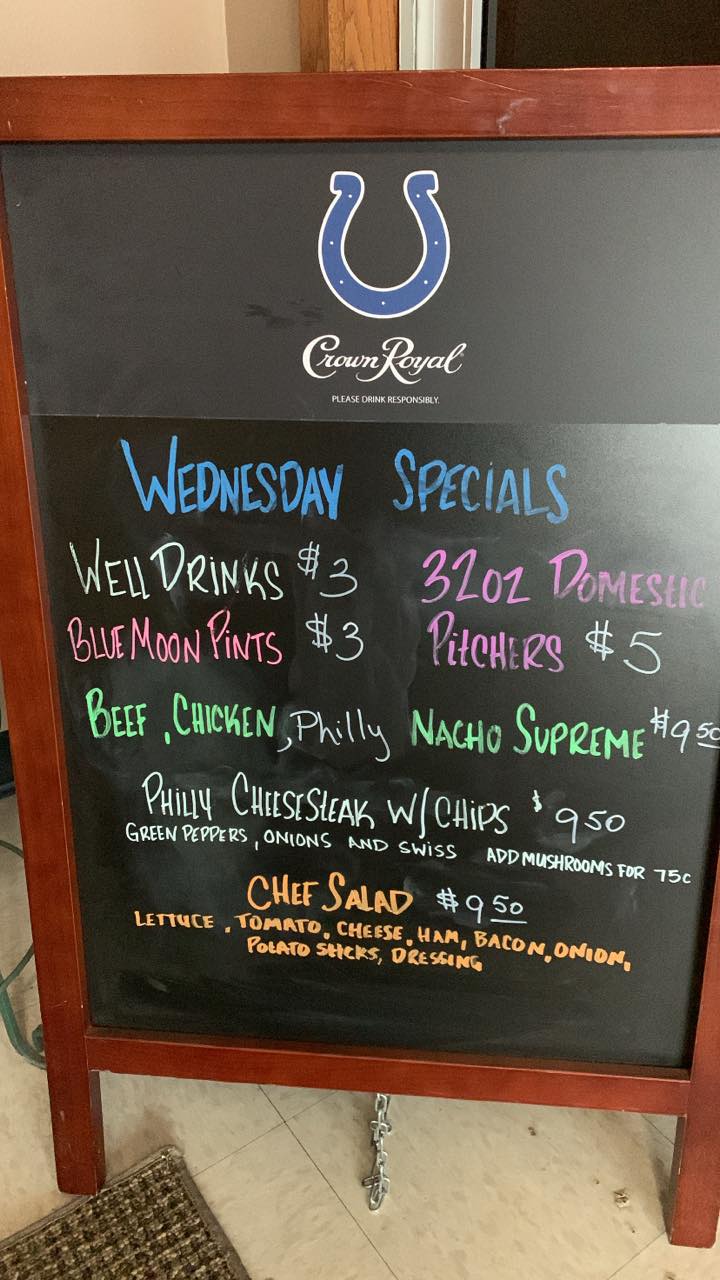 Crown Royal
PLEASE DRINK RESPONSIBLY.
WEDNESDAY SPECIALS
WELL DRINKS $3
BLUE MOON PINTS $3
32OZ DOMESTIC
PITCHERS $5
BEEF, CHICKEN, Philly NACHO SUPREME $9 50
PHILLY CHEESESTEAK W/ CHIPS $9 50
GREEN PEPPERS, ONIONS AND SWISS ADD MUSHROOMS FOR 75¢
CHEF SALAD $9 50
LETTUCE, TOMATO, CHEESE, HAM, BACON, ONION,
POTATO STICKS, DRESSING